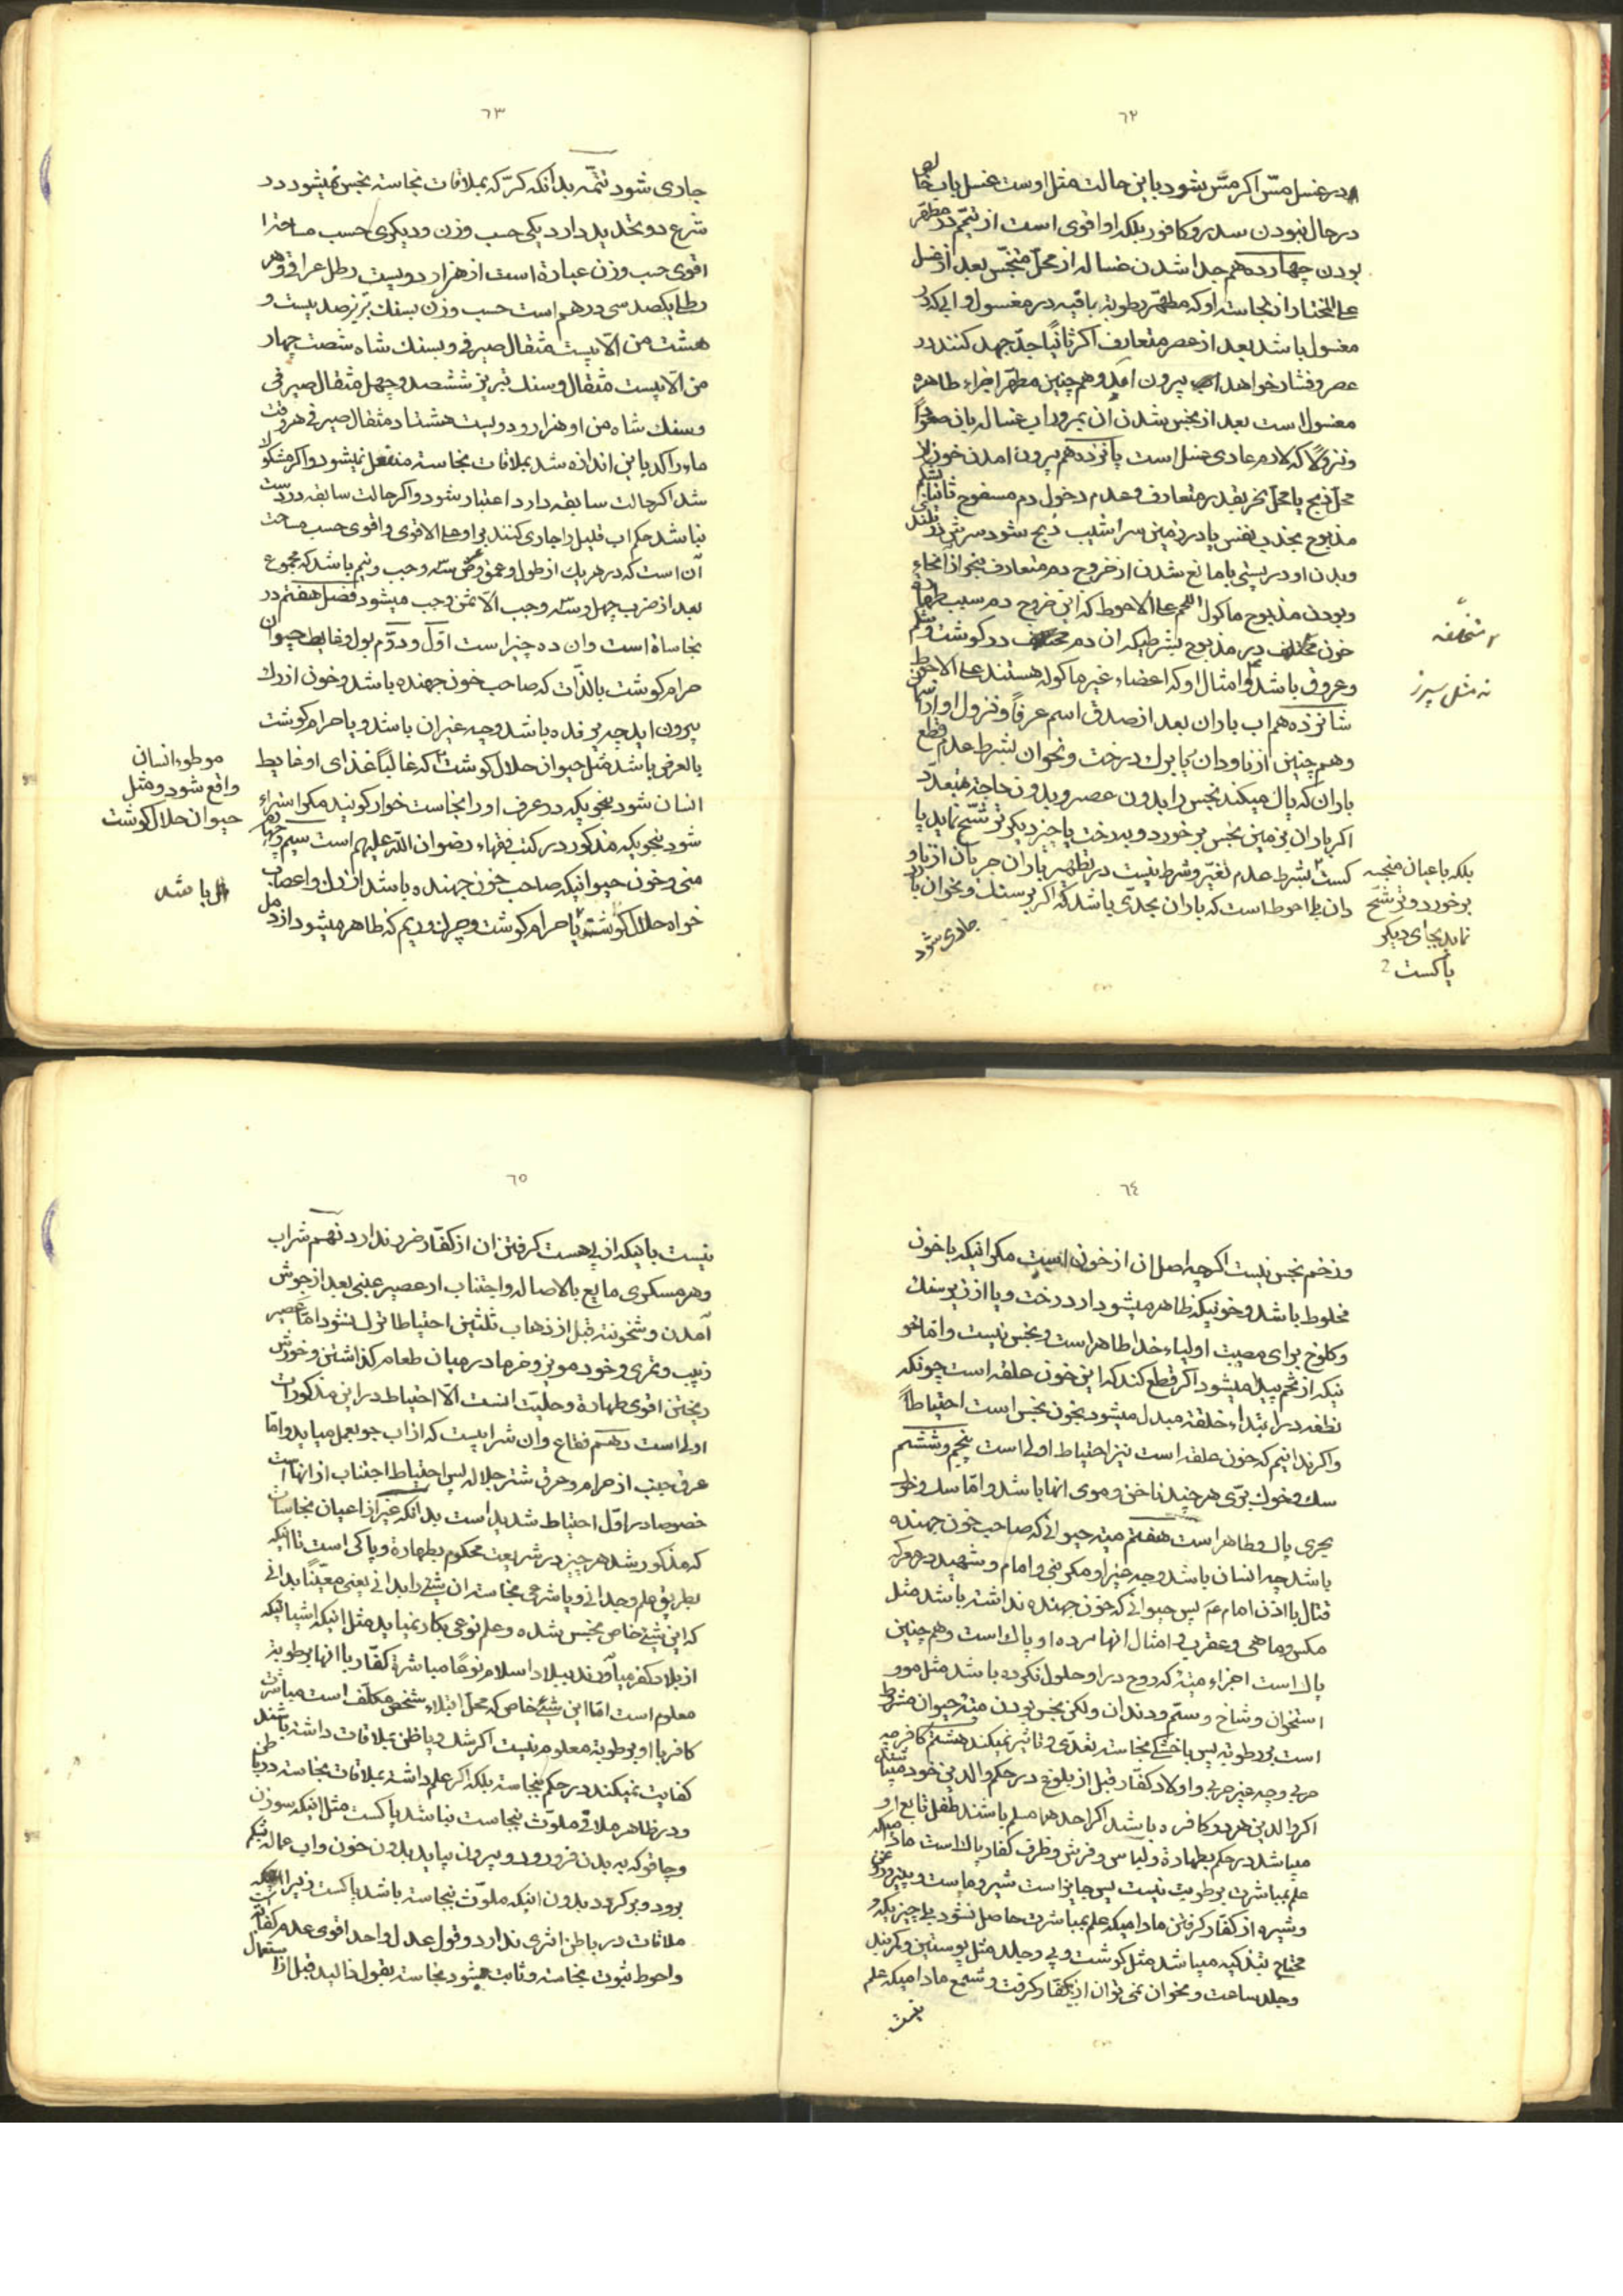 ٦٢
در غسل مسّ اكر مسّ بشود باین حالت مثل اوست غسل باب خالص
در حال نبودن سدر و كافور بلكه او اقوی است از تیمّم در مطهّر
بودن چهاردهم جدا شدن غساله از محلّ متنجّس بعد از غسل
علی المختار از نجاسته او كه مطهّر رطوبة باقیه در مغسول و
مغسول باشد بعد از عصر متعارف اكر ثانیًا جدّ جهد كنند در
عصر و فشار خواهد اب بیرون امد و همچنین مطهّر اجزاء طاهره
مغسول است بعد از نجس شدن ان بمرور اب غساله بان
كه لازم عادی غسل است پانزدهم بیرون امدن خون از
محلّ ذبح یا محلّ نحر بقدر متعارف و عدم دخول دم مسفوح ثانیا
مذبوح بجذب نفس یا در زمین سراشیب ذبح شود سرش در بلند
و بدن او در پستی یا مانع شدن از خروج دم متعارف بنحو از انحاء
و بودن مذبوح ماكول اللحم علی الاحوط كه این خروج دم سبب طهارة
خون در مذبوح بشرطیكه ان دم در كوشت و
متخلّفه
و عروق باشد و امثال او كه اعضاء غیر ماكوله هستند علی الاحوط
نه مثل سپرز
شانزدهم اب باران بعد از صدق اسم عرفاً و نزول او از
و همچنین از ناودان یا برك درخت و نحو ان بشرط عدم قطع
باران كه پاك میكند نجس را بدون عصر و بدون حاجة بتعدّد
اكر باران بزمین نجس برخورد و بدرخت یا چیز دیكر ترشّح نماید پا
كست بشرط عدم تغیّر و شرط نیست در تطهیر باران جریان از ناو
دان بلی احوط است كه باران بحدّی باشد كه اكر بر سنك و نحو ان
بلكه باعیان نجسه
برخورد و ترشّح
نماید بجای دیكر
پاكست
جاری شود
٦٣
جاری شود تتمّه بدانكه كرّ كه بملاقات نجاسته نجس نمیشود در
شرع دو تحدید دارد یكی حسب وزن و دیكری حسب مساحة
اقوی حسب وزن عبارة است از هزار دویست رطل عراقی و هر
رطلی یكصد سی درهم است حسب وزن بسنك تبریز صد بیست و
هشت من الّا بیست مثقال صیرفی و بسنك شاه شصت چهار
من الّا بیست مثقال و سنك تبریز ششصد و چهل مثقال صیرفی
و سنك شاه من او هزار و دویست هشتاد مثقال صیرفی هر وقت
ماء راكد باین اندازه شد بملاقات نجاسته منفعل نمیشود و اكر مشكوك
شد اكر حالت سابقه دارد اعتبار شود و اكر حالت سابقه در دست
نباشد حكم اب قلیل را جاری كنند بر او علی الاقوی و اقوی حسب مساحت
آن است كه در هر یك از طول و عمق و عرض سه وجب و نیم باشد كه مجموع
بعد از ضرب چهل و سه وجب الّا ثمن وجب میشود فصل هفتم در
نجاساة است و ان ده چیز است اوّل و دوّم بول و غایط حیوان
حرام كوشت بالذّات كه صاحب خون جهنده باشد و خون از رك
بیرون اید چه پرنده باشد و چه غیر ان باشد و یا حرام كوشت
بالعرض باشد مثل حیوان حلال كوشت كه غالبًا غذای او غایط
موطوء انسان
واقع شود و مثل
حیوان حلال كوشت
انسان شود بنحویكه در عرف او را نجاست خوار كویند مكر استبراء
شود بنحویكه مذكور در كتب فقهاء رضوان اللّه علیهم است سیم و چهارم
منی و خون حیوانیكه صاحب خون جهنده باشد از رك و اعصاب
باشد
خواه حلال كوشت یا حرام كوشت و چرك و ریم كه ظاهر میشود از دمل
٦٤
و زخم نجس نیست اكرچه اصل ان از خون است مكر انیكه با خون
مخلوط باشد و خونیكه ظاهر میشود از درخت و یا از زیر سنك
و كلوخ برای مصیبت اولیاء خدا طاهر است و نجس نیست و امّا خو
نیكه از تخم پیدا میشود اكر قطع كند كه این خون علقه است چونكه
نطفه در ابتداء خلقة مبدل میشود بخون نجس است احتیاطاً
و اكر ندانیم كه خون علقه است نیز احتیاط اولی است پنجم و ششم
سك و خوك برّی هر چند ناخن و موی انها باشد و امّا سك و خوك
بحری پاك و طاهر است هفتم میته حیوانی كه صاحب خون جهنده
باشد چه انسان باشد و چه غیر او مكر نبی و امام و شهید در معركه
قتال با اذن امام ع پس حیوانی كه خون جهنده نداشته باشد مثل
مكس و ماهی و عقرب و امثال انها مرده او پاك است و همچنین
پاك است اجزاء میته كه روح در او حلول نكرده باشد مثل مو و
استخوان و شاخ و سمّ و دندان ولكن نجس بودن میته حیوان مشروط
است برطوبة پس با خشكی نجاسته تعدّی و تاثیر نمیكند هشتم كافر چه
حربی و چه غیر حربی و اولاد كفّار قبل از بلوغ در حكم والدین خود میباشند
اكر والدین هر دو كافر باشند اكر احدهما مسلم باشند طفل تابع او
میباشد در حكم بطهارة و لباس و فرش و ظرف كفار پاك است مادامیكه
علم بمباشرت برطوبت نیست پس جایز است شیر و ماست و پنیر و روغن
و شیره از كفّار كرفتن مادامیكه علم بمباشرت حاصل نشود بلی چیزیكه
محتاج بتذكیه میباشد مثل كوشت و پی و جلد مثل پوستین و كمربند
و جلد ساعت و نحو ان نمی توان از كفّار كرفت و شمع مادامیكه علم
نیست
٦٥
نیست بانیكه از پی هست كرفتن ان از كفّار ضرر ندارد نهم شراب
و هر مسكری مایع بالاصاله و اجتناب از عصیر عنبی بعد از جوش
آمدن و شخونته قبل از ذهاب ثلثین احتیاطا ترك نشود امّا عصیر
زبیب و تمری و خود مویز و خرما در میان طعام كذاشتن و خورش
ریختن اقوی طهارة و حلیّت انست الّا احتیاط در این مذكورات
اولی است دهم فقاع و ان شرابیست كه از اب جو بعمل میاید و امّا
عرق جنب از حرام و عرق شتر جلاله پس احتیاط اجتناب از انها است
خصوصا در اوّل احتیاط شدید است بدانكه غیر از اعیان نجاسات
كه مذكور شد هر چیز در شریعت محكوم بطهارة و پاكی است تا انیكه
بطریق علم وجدانی و یا شرعی نجاسته ان شیئ را بدانی یعنی معیّنًا بدانی
كه این شیئ خاص نجس شده و علم نوعی بكار نمیاید مثل انیكه اشیائیكه
از بلاد كفر میآورند ببلاد اسلام نوعًا مباشرة كفّار با انها برطوبة
معلوم است امّا این شیئ خاص كه محلّ ابتلاء شخص مكلّف است مباشرت
كافر با او برطوبة معلوم نیست اكر شك و یا ظنّ بملاقات داشته باشند
كفایت نمیكند در حكم نجاسته بلكه اكر علم داشته بملاقات نجاسته در باطن
و در ظاهر ملاقی ملوّث بنجاست نباشد پاكست مثل انیكه سوزن
و چاقو كه به بدن فرو رود و بیرون بیاید بدون خون و اب اماله بشكم
برود و بركردد بدون اینكه ملوّث بنجاسته باشد پاكست زیرا كه
ملاقات در باطن اثری ندارد و قول عدل واحد اقوی عدم كفایة است
و احوط ثبوت نجاسته و ثابت میشود نجاسته بقول ذالید قبل از استعمال